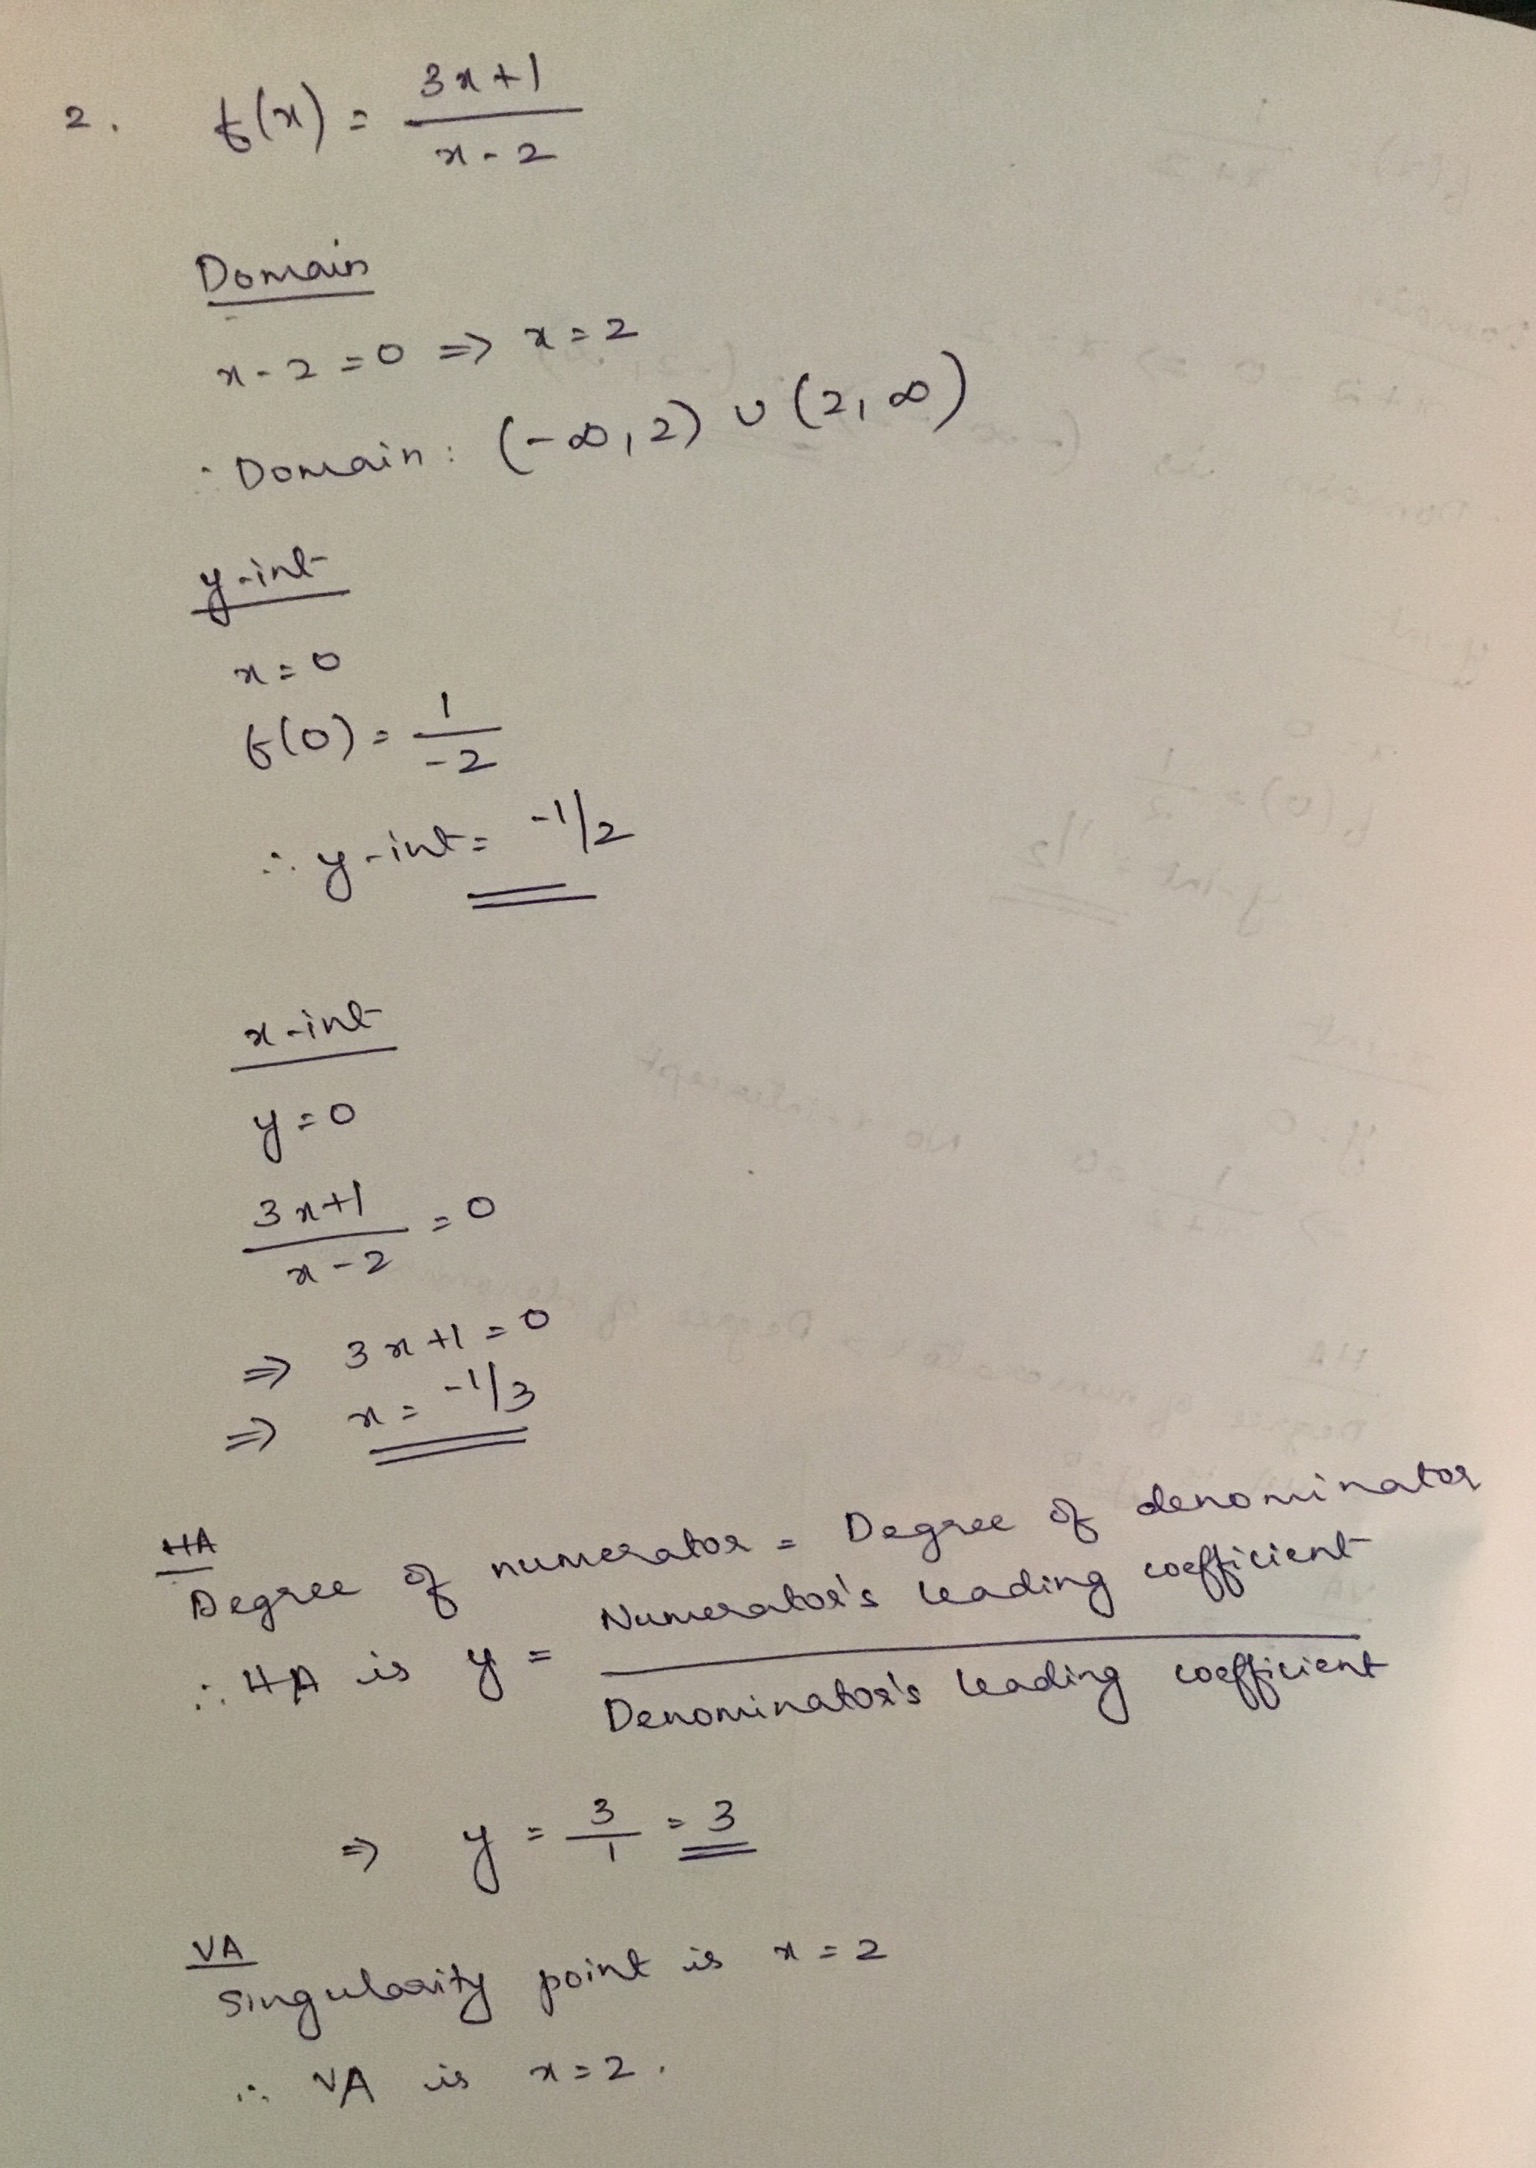 2. f(x) = (3x+1)/(x-2)
Domain
x-2=0 => x=2
∴ Domain: (-∞,2) ∪ (2,∞)
y-int
x=0
f(0) = 1/-2
∴ y-int = -1/2
x-int
y=0
(3x+1)/(x-2) = 0
=> 3x+1=0
=> x = -1/3
HA
Degree of numerator = Degree of denominator
∴ HA is y = Numerator's leading coefficient / Denominator's leading coefficient
=> y = 3/1 = 3
VA
Singularity point is x=2
∴ VA is x=2.